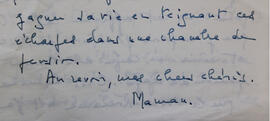 gagner sa vie en teignant ces
écharpes dans une chambre de
Au revoir, mes chers chéris.
Maman.